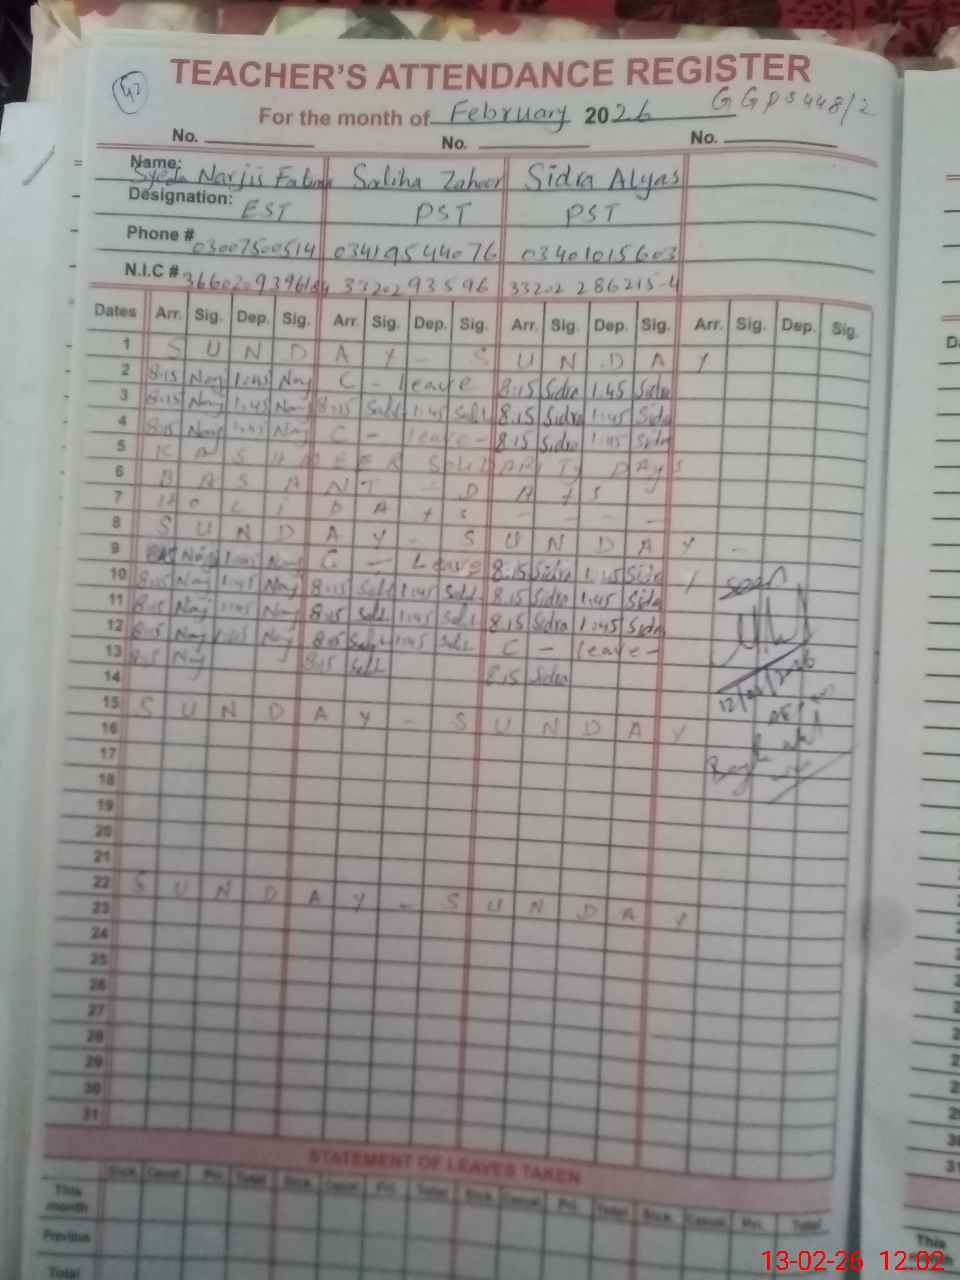 42
TEACHER'S ATTENDANCE REGISTER
For the month of February 2026 GGPS 448/2
No. No. No.
Name: Syeda Narjis Fatima Saliha Zaheer Sidra Alyas
Designation: EST PST PST
Phone # 03007500514 03419544076 03401015603
N.I.C # 33202 93596 33202 286215-4
Dates Arr. Sig. Dep. Sig. Arr. Sig. Dep. Sig. Arr. Sig. Dep. Sig. Arr. Sig. Dep. Sig.
1 S U N D A Y - S U N D A Y
2 8:15 Narj 1:45 Narj C - leave 8:15 Sidra 1:45 Sidra
3 8:15 Narj 1:45 Narj 8:15 Sali 1:45 Sali 8:15 Sidra 1:45 Sidra
4 8:15 Narj 1:45 Narj C - leave - 8:15 Sidra 1:45 Sidra
5 K A S H M E E R SOLIDARITY DAYS
6 B A S A N T - D A Y S -
7 H O L I D A Y S - - - -
8 S U N D A Y - S U N D A Y -
9 8:15 Narj 1:45 Narj C - Leave 8:15 Sidra 1:45 Sidra
10 8:15 Narj 1:45 Narj 8:15 Sali 1:45 Sali 8:15 Sidra 1:45 Sidra seen
11 8:15 Narj 1:45 Narj 8:15 Sali 1:45 Sali 8:15 Sidra 1:45 Sidra
12 8:15 Narj 1:45 Narj 8:15 Sali 1:45 Sali C - leave -
13 8:15 Narj 8:15 Sali 8:15 Sidra
14 12/02/2026
15 S U N D A Y - S U N D A Y
16
17
18
19
20
21
22 S U N D A Y - S U N D A Y
23
24
25
26
27
28
29
30
31
STATEMENT OF LEAVES TAKEN
Sick. Casual. Pri. Total. Sick. Casual. Pri. Total. Sick. Casual. Pri. Total. Sick. Casual. Pri. Total.
This month
Previous
Total
31
This
13-02-26 12:02